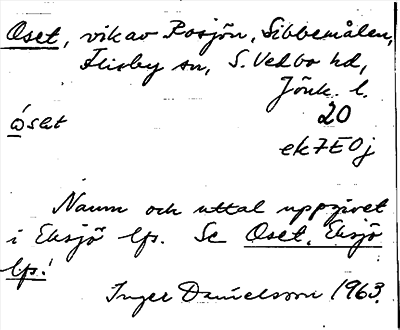 Oset, vik av Posjön, Sibbemålen,
Flisby sn, S. Vedbo hd,
Jönk. l.
20
ósət
ek 7E0j
Namn och uttal uppgivet
i Eksjö lfs. Se Oset, Eksjö
lfs!
Inger Danielsson 1963.